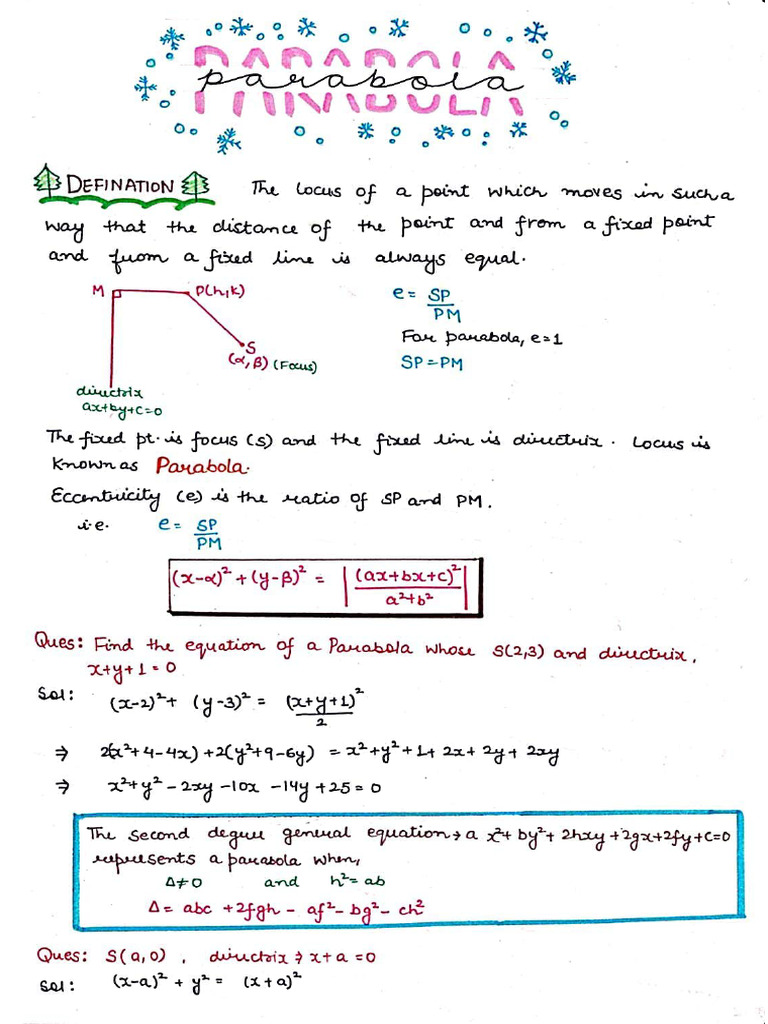 PARABOLA
parabola
DEFINATION The locus of a point which moves in such a
way that the distance of the point and from a fixed point
and from a fixed line is always equal.
M P(h,k)
S
(α,β) (Focus)
directrix
ax+by+c=0
e = SP/PM
For parabola, e=1
SP=PM
The fixed pt. is focus (s) and the fixed line is directrix. Locus is
known as Parabola.
Eccentricity (e) is the ratio of SP and PM.
i.e. e = SP/PM
(x-α)² + (y-β)² = |(ax+bx+c)²/a²+b²|
Ques: Find the equation of a Parabola whose S(2,3) and directrix,
x+y+1=0
Sol: (x-2)² + (y-3)² = (x+y+1)²/2
⇒ 2(x²+4-4x)+2(y²+9-6y) = x²+y²+1+2x+2y+2xy
⇒ x²+y²-2xy-10x-14y+25=0
The second degree general equation → a x²+by²+2hxy+2gx+2fy+c=0
represents a parabola when,
Δ≠0 and h²=ab
Δ= abc +2fgh - af²-bg²-ch²
Ques: S(a,0), directrix ⇒ x+a=0
Sol: (x-a)² + y² = (x+a)²